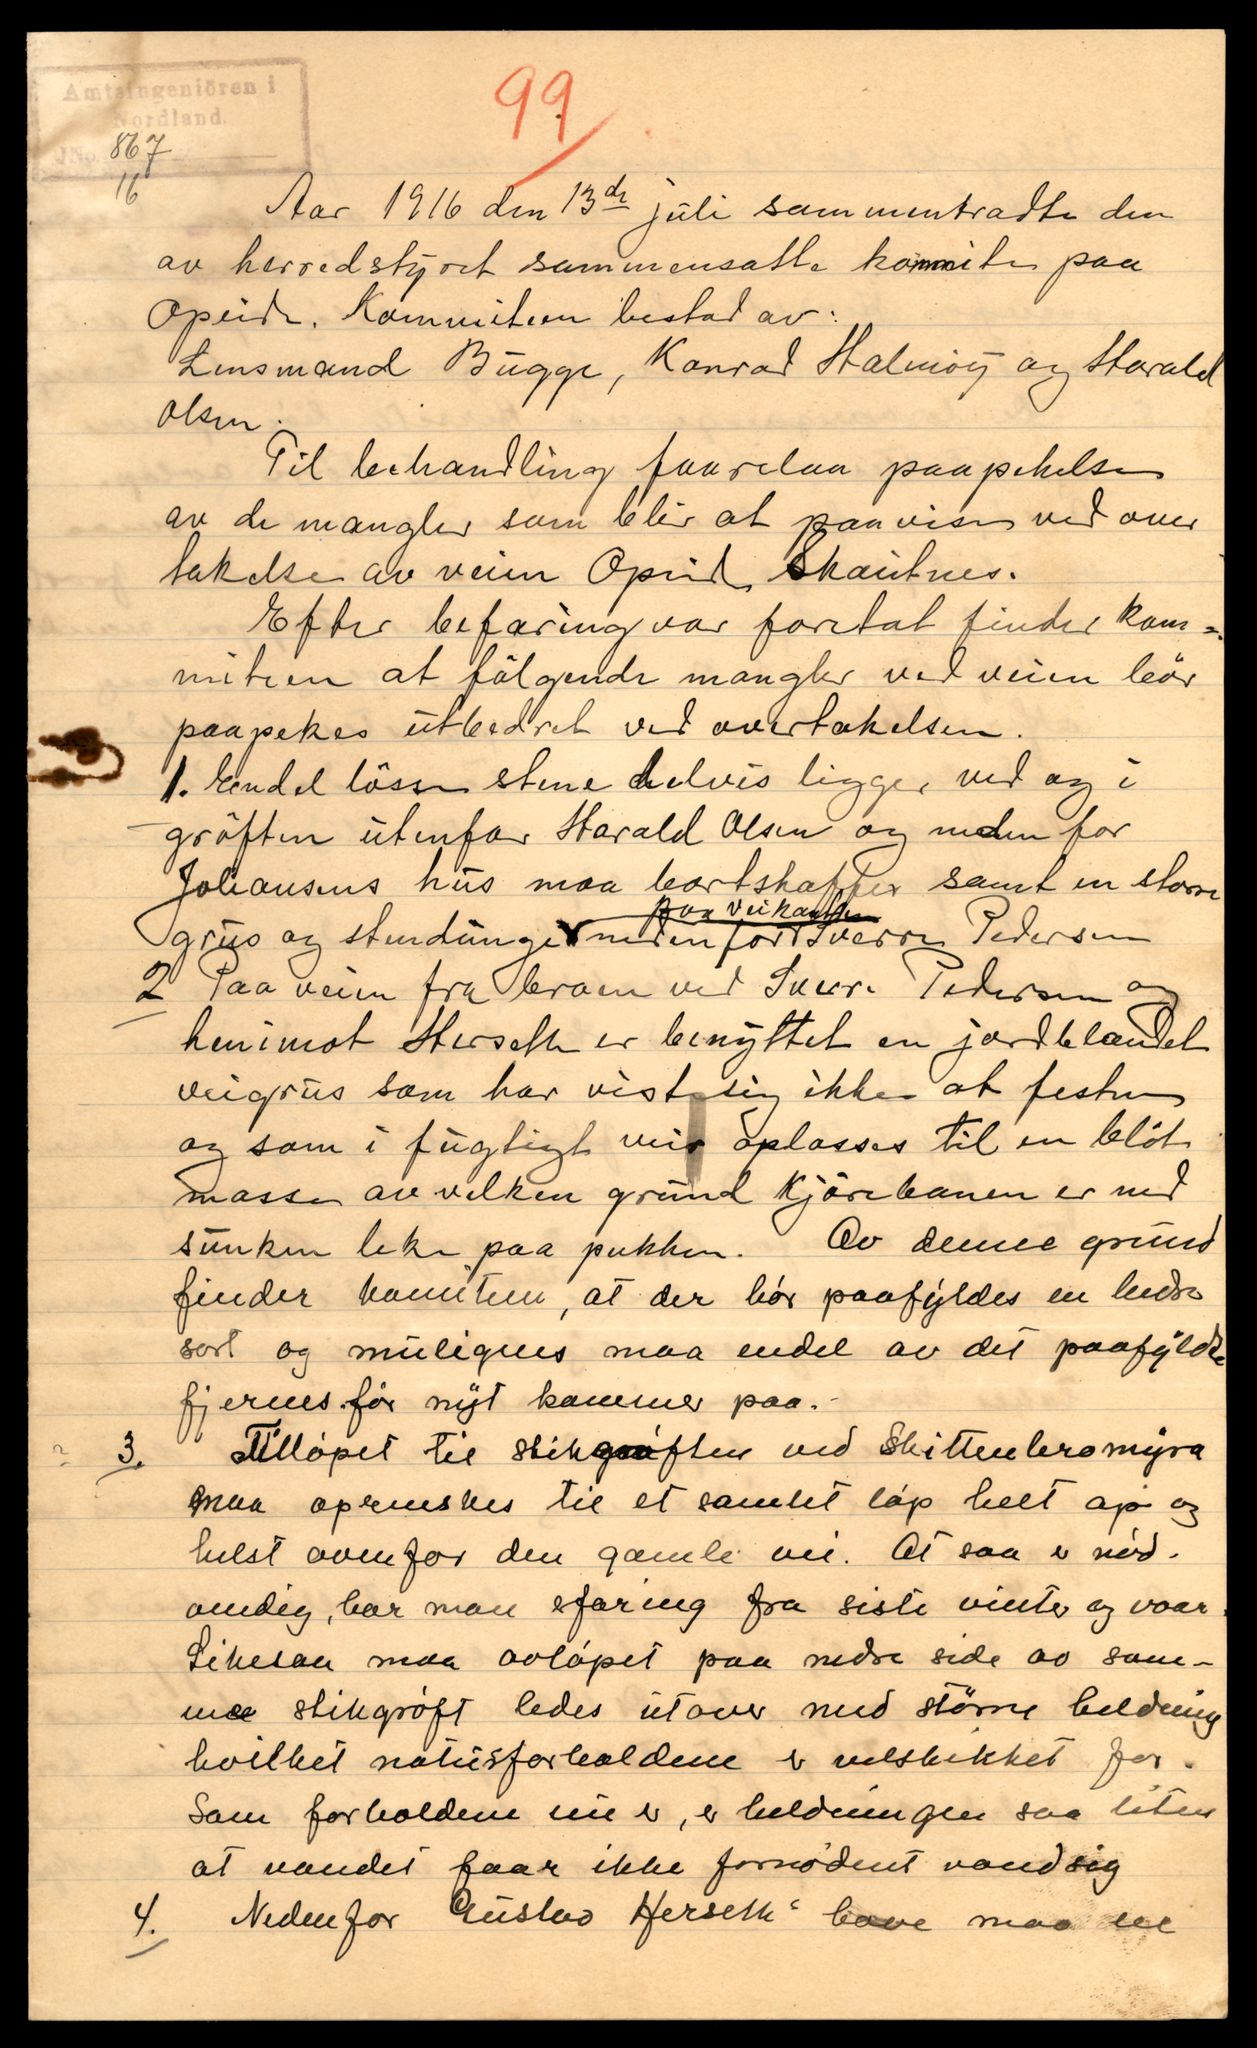 Amtsingeniören i
Nordland.
JNo. 867
16
99
Aar 1916 den 13de juli sammentraadte den
av herredstyret sammensatte kommite paa
Opeide. Kommiteen bestod av:
Lensmand Bugge, Konrad Halmöy og Harald
Olsen.
Til behandling foorelaa paapekelse
av de mangler som blir at paavise ved over
takelse av veien Opeide Skautnes.
Efter befaring var foretat finder kom=
miteen at fölgende mangler ved veien bör
paapekes utbedret ved overtakelsen.
1. Endel lösse stene delvis ligger ved og i
gröften utenfor Harald Olsen og neden for
Johansens hus maa bortskaffes samt en større
paa veikanten
grus og stendunge nedenfor Sverre Pedersen
2 Paa veien fra broen ved Sverre Pedersen og
henimot Herseth er benyttet en jordblandet
veigrus som har vist sig ikke at feste
og som i fugtigt veir oplösses til en blöt
masse av velken grund kjörebanen er ned
sunken like paa pukken. Av denne grund
finder komiteen, at der bör paafyldes en bedre
sort og muligens maa endel av det paafyldte
fjernes för nyt kommer paa.
3. Tillöpet til stikgröften ved Skittenbromyra
maa oprenskes til et samlet löp helt op og
helst ovenfor den gamle vei. At saa er nöd-
vendig, har man erfaring fra siste vinter og vaar.
Likesaa maa avlöpet paa nedre side av sam-
me stikgröft ledes utover med större heldning
hvilket naturforholdene er velskikket for.
Som forholdene nu er, er heldningen saa liten
at vandet faar ikke fornödent vandsig
4. Nedenfor Gustav Herseth's have maa en